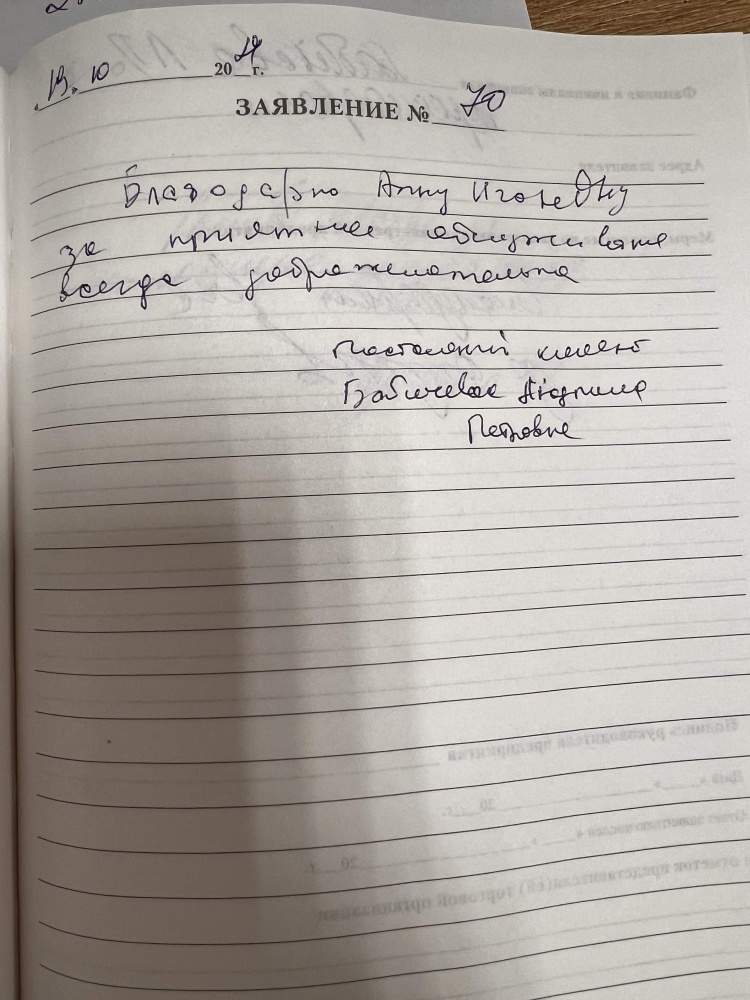 20 24 г.
ЗАЯВЛЕНИЕ № 70
Благодарю Анну Игоревну
за приятное обслуживание
всегда доброжелательна
Постоянный клиент
Бабичева Людмила
Петровна